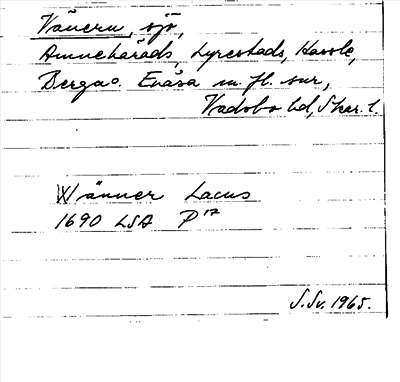 Vänern, sjö,
Amnehärads, Lyrestads, Hassle,
Berga o. Enåsa m. fl. snr,
Vadsbo hd, Skar. l.
Wänner Lacus
1690 LSA P 17
S. Sv. 1965.